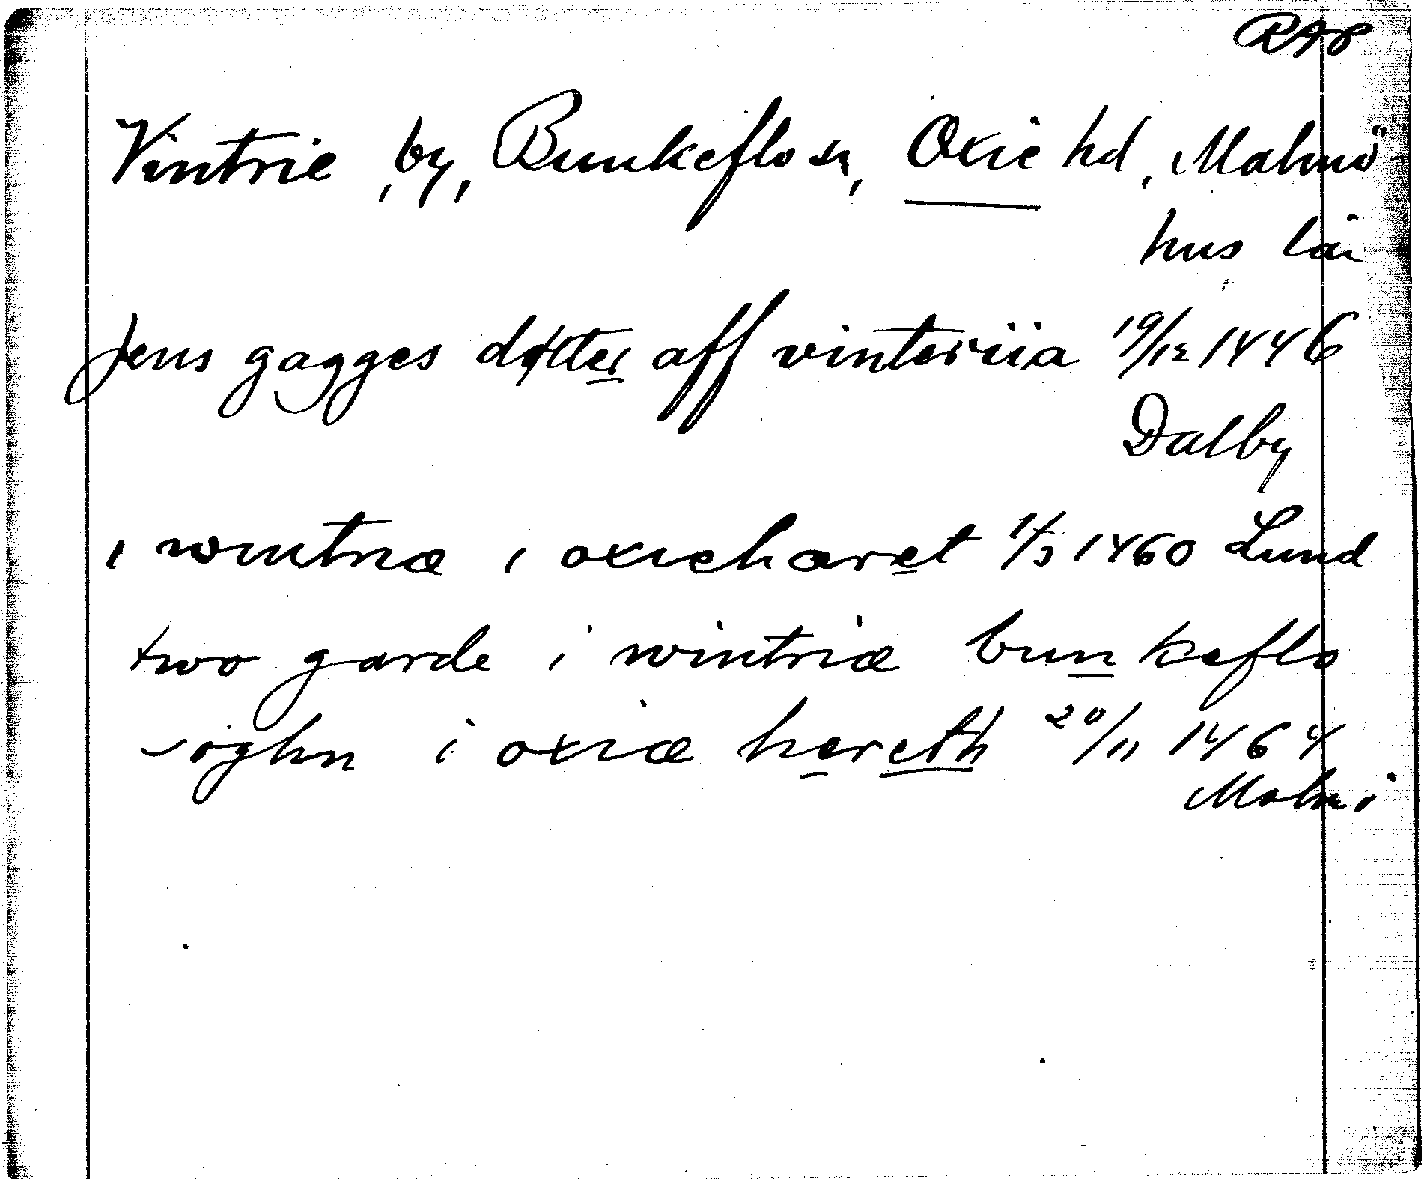 RAP
Vintrie, by, Bunkeflo sn, Oxie hd, Malmö
hus län
Jens gagges dotter aff vinteriia 19/12 1446
Dalby
i wintriæ i oxiehæret 1/3 1460 Lund
two garde i wintriæ bunkeflo
soghn i oxiæ hereth 20/11 1464
Malmö